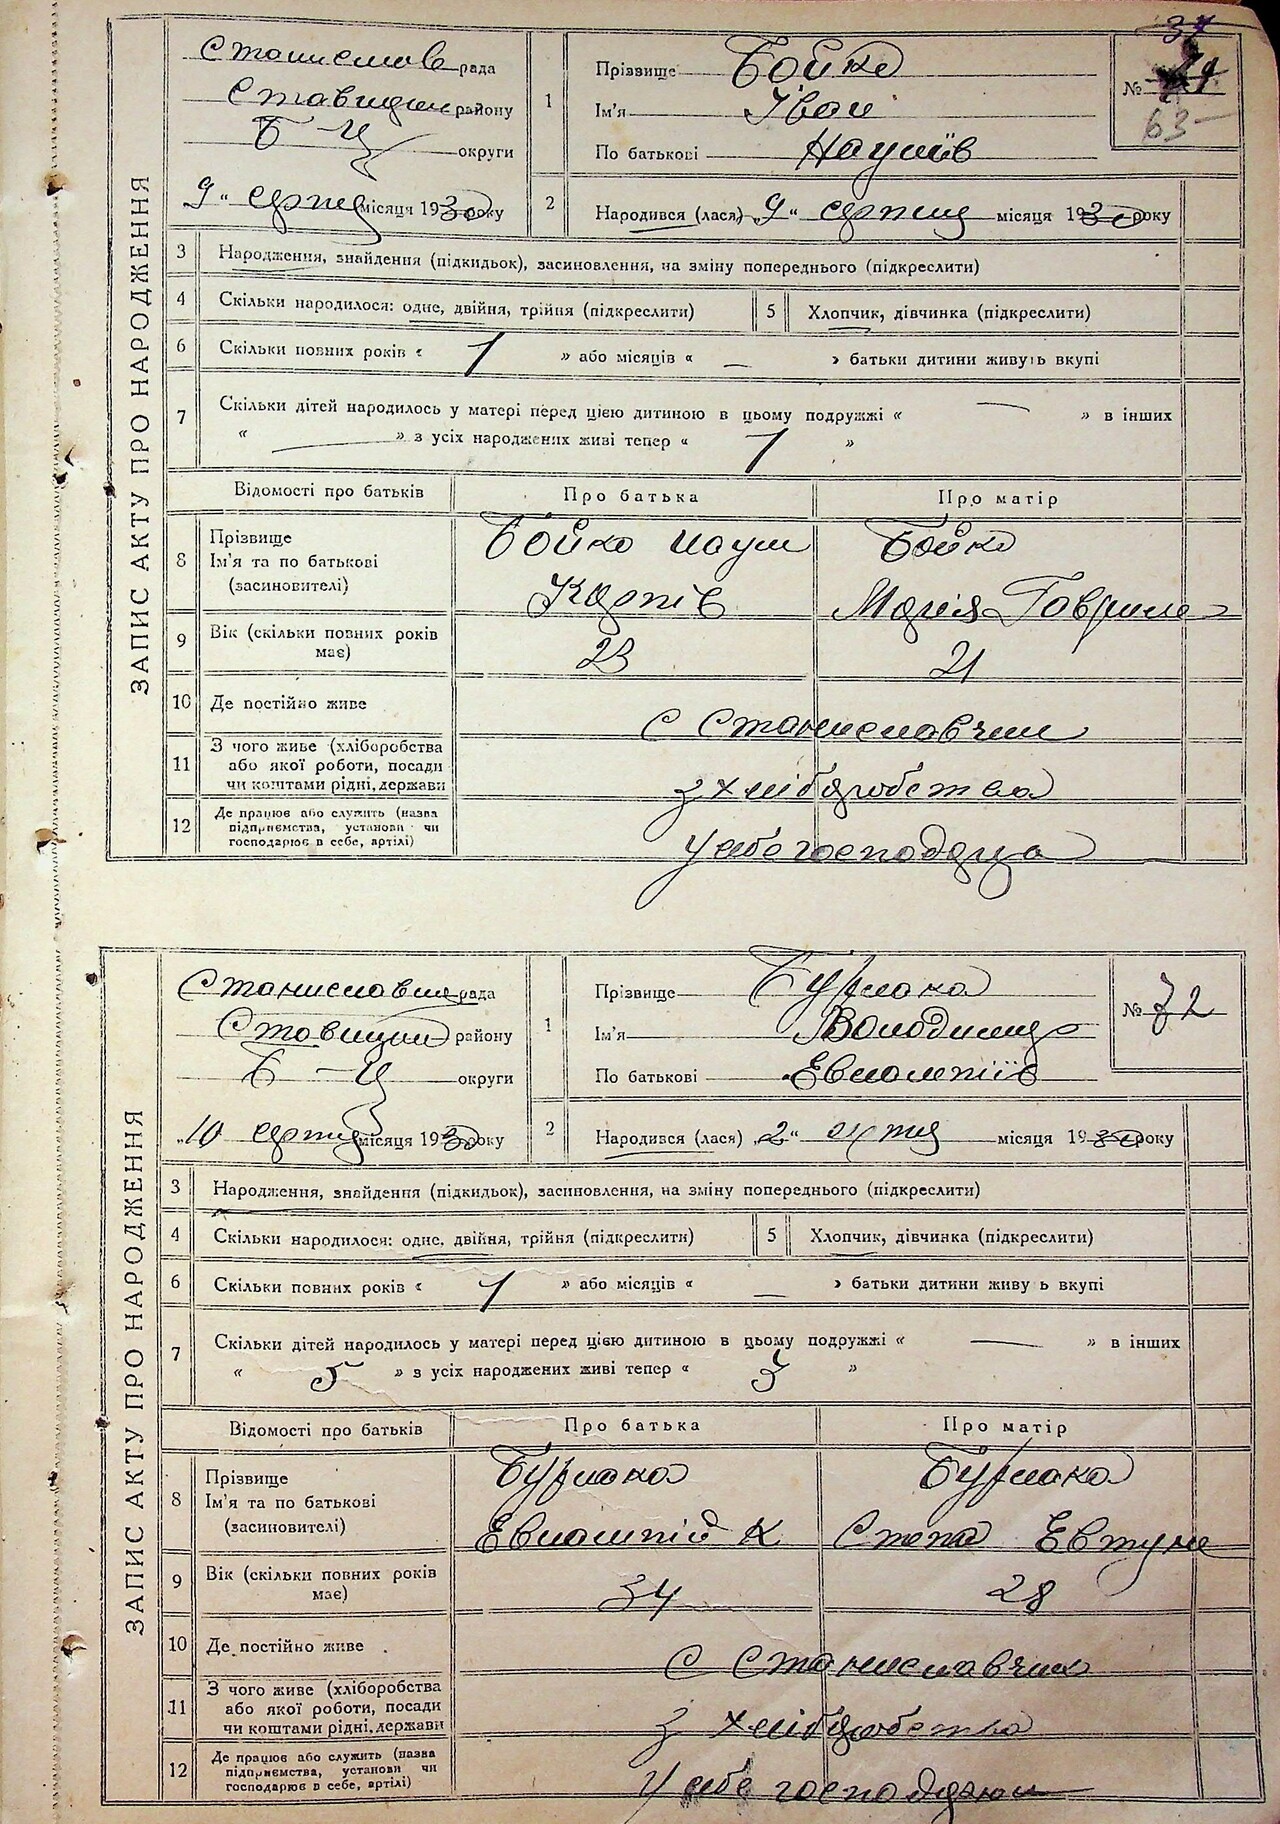 ЗАПИС АКТУ ПРО НАРОДЖЕННЯ
37
рада
району
Б-Ц округи
9 " серпня місяця 1930 року
1
Прізвище Бойко
Ім'я Іван
По батькові Наумів
№
63
2
Народився (лася) „9" серпня місяця 1930 року
3 Народження, знайдення (підкидьок), засиновлення, на зміну попереднього (підкреслити)
4 Скільки народилося: одне, двійня, трійня (підкреслити) 5 Хлопчик, дівчинка (підкреслити)
6 Скільки повних років « 1 » або місяців « — » батьки дитини живуть вкупі
7 Скільки дітей народилось у матері перед цією дитиною в цьому подружжі « — » в інших
« — » з усіх народжених живі тепер « 1 »
Відомості про батьків Про батька Про матір
8 Прізвище
Ім'я та по батькові
(засиновителі)
Бойко Наум
Карпів
Бойко
Марія Гаврил
9 Вік (скільки повних років
має)
23 21
10 Де постійно живе с Станиславчик
11 З чого живе (хліборобства
або якої роботи, посади
чи коштами рідні, держави
з хліборобства
12 Де працює або служить (назва
підприємства, установи чи
господарює в себе, артілі)
у себе
ЗАПИС АКТУ ПРО НАРОДЖЕННЯ
рада
району
Б-Ц округи
„10 серпня місяця 1930 року
1
Прізвище Бурлака
Ім'я Володимир
По батькові
№ 72
2
Народився (лася) „2" місяця 1930 року
3 Народження, знайдення (підкидьок), засиновлення, на зміну попереднього (підкреслити)
4 Скільки народилося: одне, двійня, трійня (підкреслити) 5 Хлопчик, дівчинка (підкреслити)
6 Скільки повних років « 1 » або місяців « — » батьки дитини живу ь вкупі
7 Скільки дітей народилось у матері перед цією дитиною в цьому подружжі « — » в інших
« 5 » з усіх народжених живі тепер « 3 »
Відомості про батьків Про батька Про матір
8 Прізвище
Ім'я та по батькові
(засиновителі)
Бурлака
К
Бурлака
Степа
9 Вік (скільки повних років
має)
34 28
10 Де постійно живе С Станиславчик
11 З чого живе (хліборобства
або якої роботи, посади
чи коштами рідні, держави
з хліборобства
12 Де працює або служить (назва
підприємства, установи чи
господарює в себе, артілі)
У себе